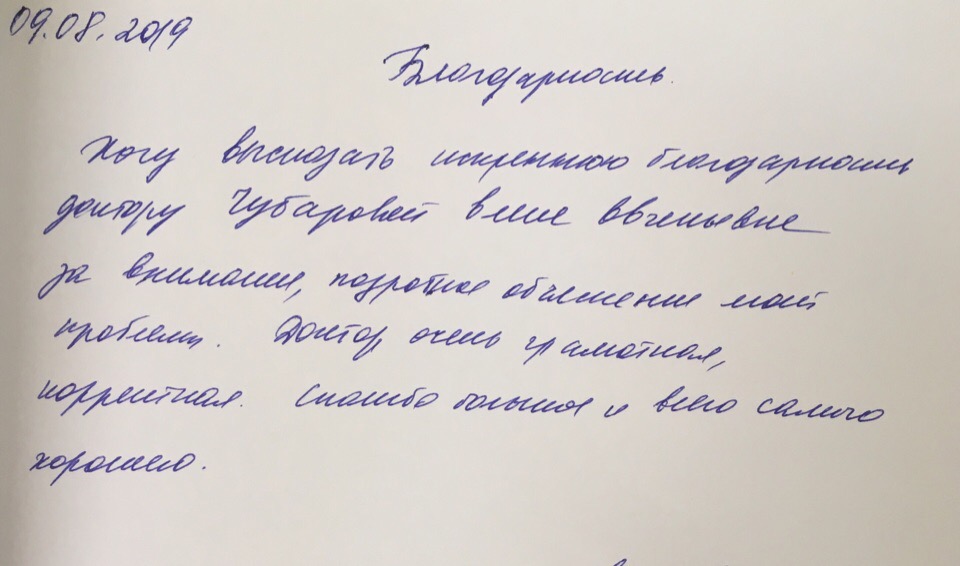 09.08.2019
Благодарность.
Хочу высказать искреннюю благодарность
доктору Чубаровой Евгеньевне
за внимание, объяснение моей
проблемы. Доктор очень грамотная,
корректная. Спасибо большое и всего самого
хорошего.